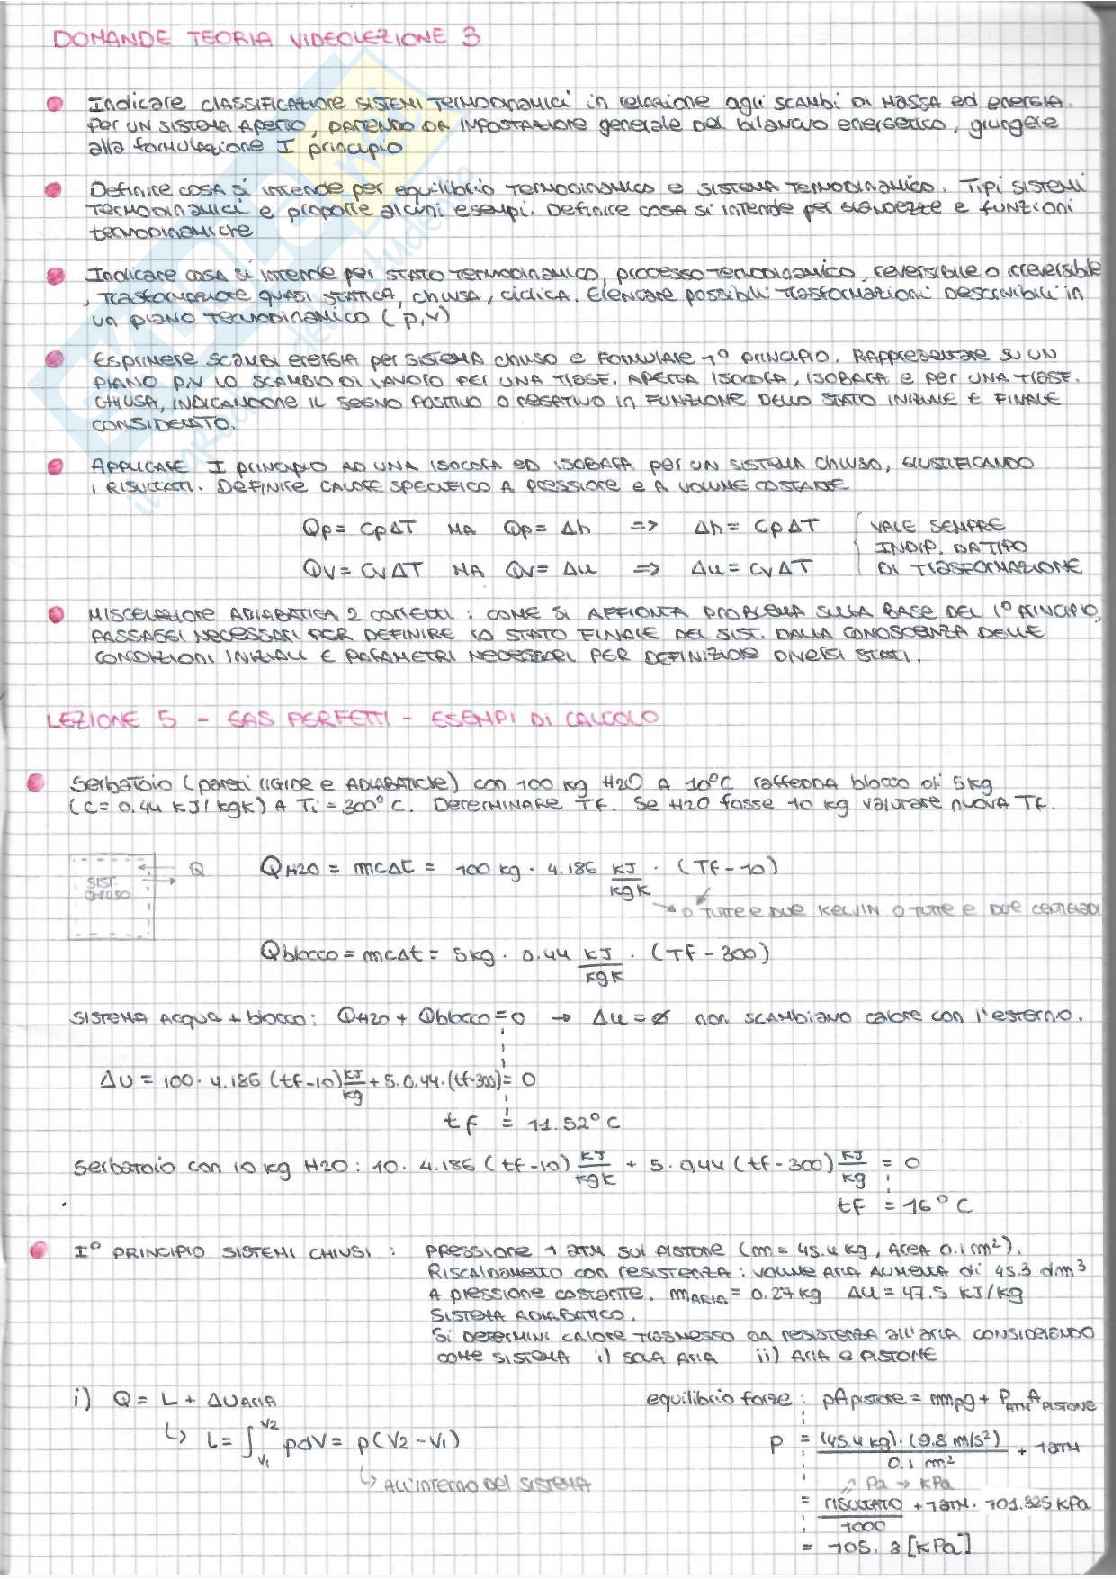 DOMANDE TEORIA VIDEOLEZIONE 3
Indicare CLASSIFICAZIONE SISTEMI TERMODINAMICI in relazione agli scambi DI MASSA ed energia.
Per UN SISTEMA APERTO, PARTENDO DA IMPOSTAZIONE generale DEL bilancio energetico, giungere
alla formulazione I principio
Definire COSA si intende per equilibrio TERMODINAMICO e SISTEMA TERMODINAMICO. Tipi SISTEMI
TERMODINAMICI e proporre alcuni esempi. Definire COSA si intende per grandezze e funzioni
termodinamiche
Indicare COSA si intende per STATO TERMODINAMICO, processo termodinamico, reversibile o irreversibile
, TRASFORMAZIONE QUASI STATICA, chiusa, ciclica. Elencare possibili TRASFORMAZIONI Descrivibili in
un piano Termodinamico (p,v)
Esprimere SCAMBI energia per SISTEMA chiuso e FORMULARE 1° principio. RAPPRESENTARE SU UN
PIANO P,V LO SCAMBIO DI LAVORO PER UNA TRASF. APERTA ISOCORA, ISOBARA e per UNA TRASF.
CHIUSA, INDICANDONE IL SEGNO POSITIVO O NEGATIVO in FUNZIONE DELLO STATO INIZIALE E FINALE
CONSIDERATO.
APPLICARE I principio AD UNA ISOCORA ED ISOBARA per UN SISTEMA CHIUSO, GIUSTIFICANDO
I RISULTATI. DEFINIRE CALORE SPECIFICO A PRESSIONE e A VOLUME COSTANTE
Qp = CpΔT MA Qp = Δh => Δh = CpΔT VALE SEMPRE
INDIP. DA TIPO
QV = CVΔT MA QV = Δu => Δu = CVΔT DI TRASFORMAZIONE
MISCELAZIONE ADIABATICA 2 CORPI: COME SI AFFRONTA PROBLEMA SULLA BASE DEL 1° PRINCIPIO,
PASSAGGI NECESSARI PER DEFINIRE LO STATO FINALE DEL SIST. DALLA CONOSCENZA DELLE
CONDIZIONI INIZIALI E PARAMETRI NECESSARI PER DEFINIZIONE DIVERSI STATI.
LEZIONE 5 - GAS PERFETTI - ESEMPI DI CALCOLO
Serbatoio (pareti RIGIDE e ADIABATICHE) con 100 kg H2O A 10°C raffredda blocco di 5kg
(C = 0.44 KJ/kgK) A Ti = 300°C. Determinare TF. Se H2O fosse 10 kg valutare nuova TF.
SIST. CHIUSO Q
QH2O = mcΔt = 100 kg · 4.186 KJ/kgK · (TF - 10)
→ O TUTTE E DUE KELVIN O TUTTE E DUE CENTIGRADI
Qblocco = mcΔt = 5kg · 0.44 KJ/kgK · (TF - 300)
SISTEMA Acqua + blocco: QH2O + Qblocco = 0 → Δu = ø non SCAMBIANO calore con l'esterno.
ΔU = 100 · 4.186 (tf-10) KJ/kg + 5·0.44·(tf-300) = 0
tf = 11.52°C
Serbatoio con 10 kg H2O: 10 · 4.186 (tf-10) KJ/kgK + 5·0.44 (tf-300) KJ/kg = 0
tf = 16°C
I° PRINCIPIO SISTEMI CHIUSI: PRESSIONE 1 ATM sul PISTONE (m = 45.4 kg, Area 0.1 m²).
Riscaldamento con resistenza: VOLUME ARIA AUMENTA di 45.3 dm³
A pressione costante. mARIA = 0.27 kg Δu = 47.5 KJ/kg
SISTEMA ADIABATICO.
Si DETERMINI CALORE TRASMESSO DA RESISTENZA all'ARIA CONSIDERANDO
COME SISTEMA i) SOLA ARIA ii) ARIA e PISTONE
i) Q = L + ΔUARIA equilibrio forze: pApistone = mpg + PATM APISTONE
↳ L = ∫V1 V2 pdV = p(V2 - V1) P = (45.4 kg)·(9.8 m/s²) / 0.1 m² + 1ATM
↳ ALL'INTERNO DEL SISTEMA Pa → kPa
= RISULTATO / 1000 + 1ATM · 101.325 kPa
= 105.8 [kPa]